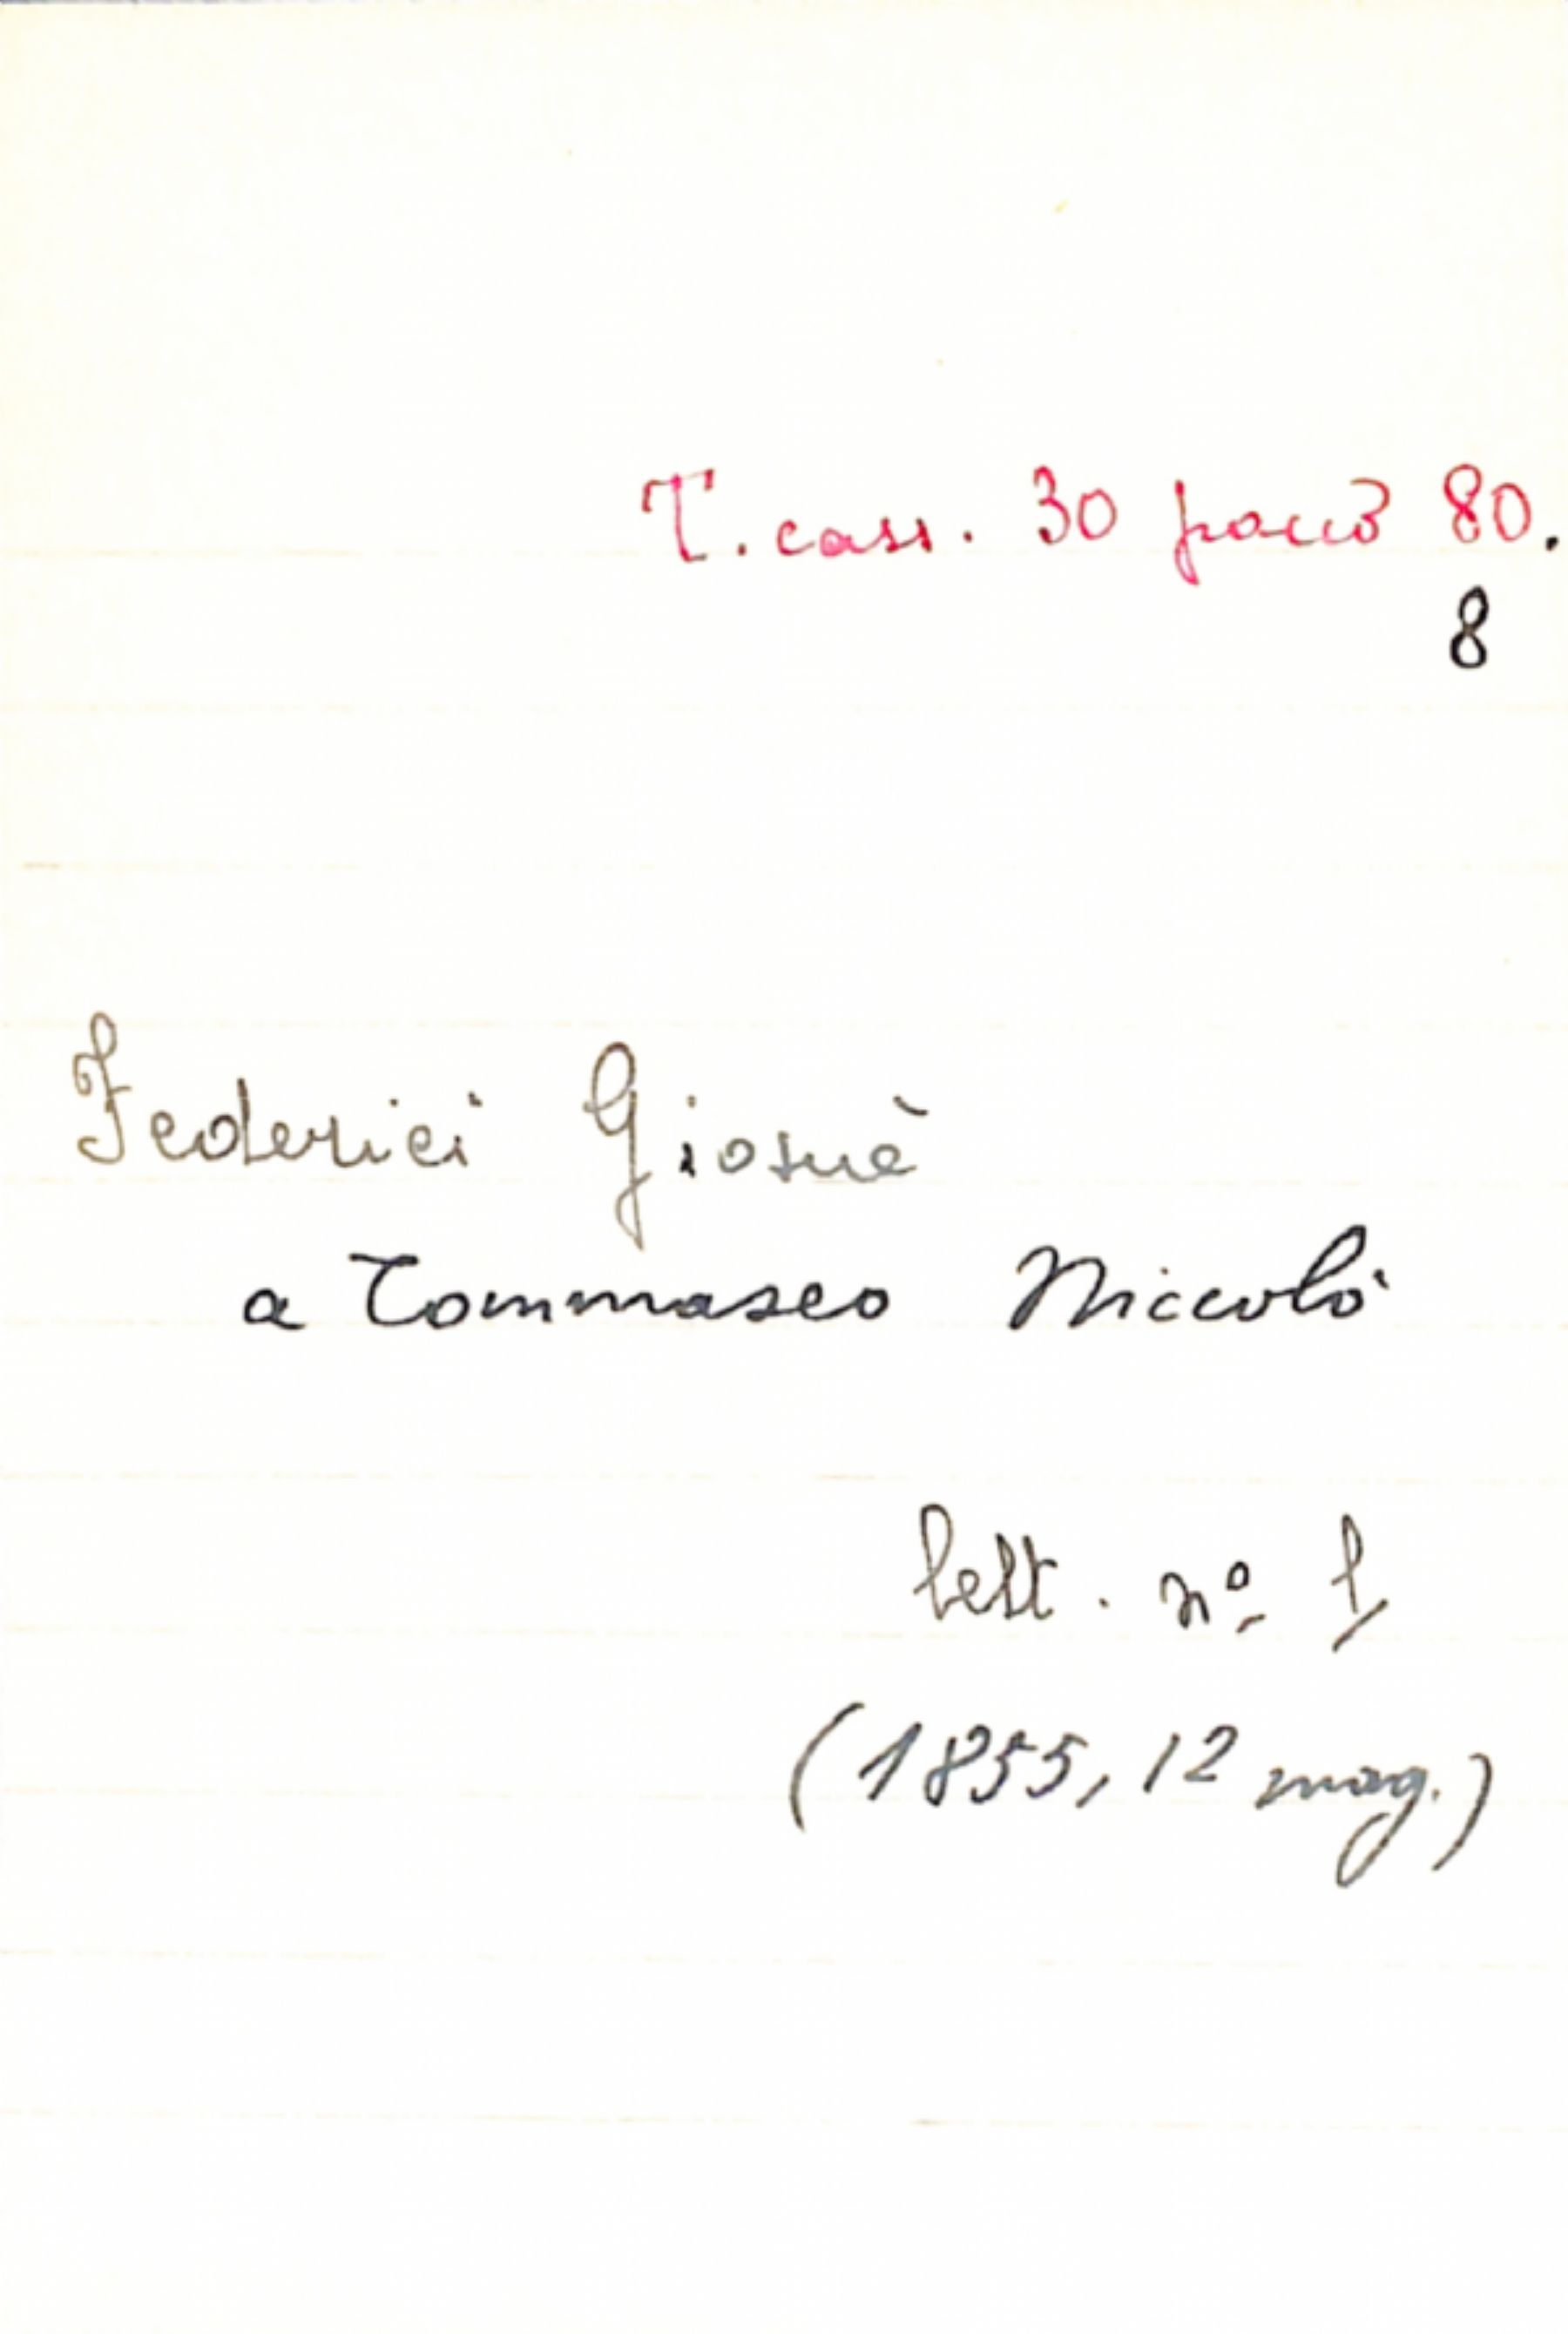 T. cass. 30 pacco 80.
8
Federici Giosuè
a Tommaseo Niccolò
lett. nº 1
(1855, 12 mag.)